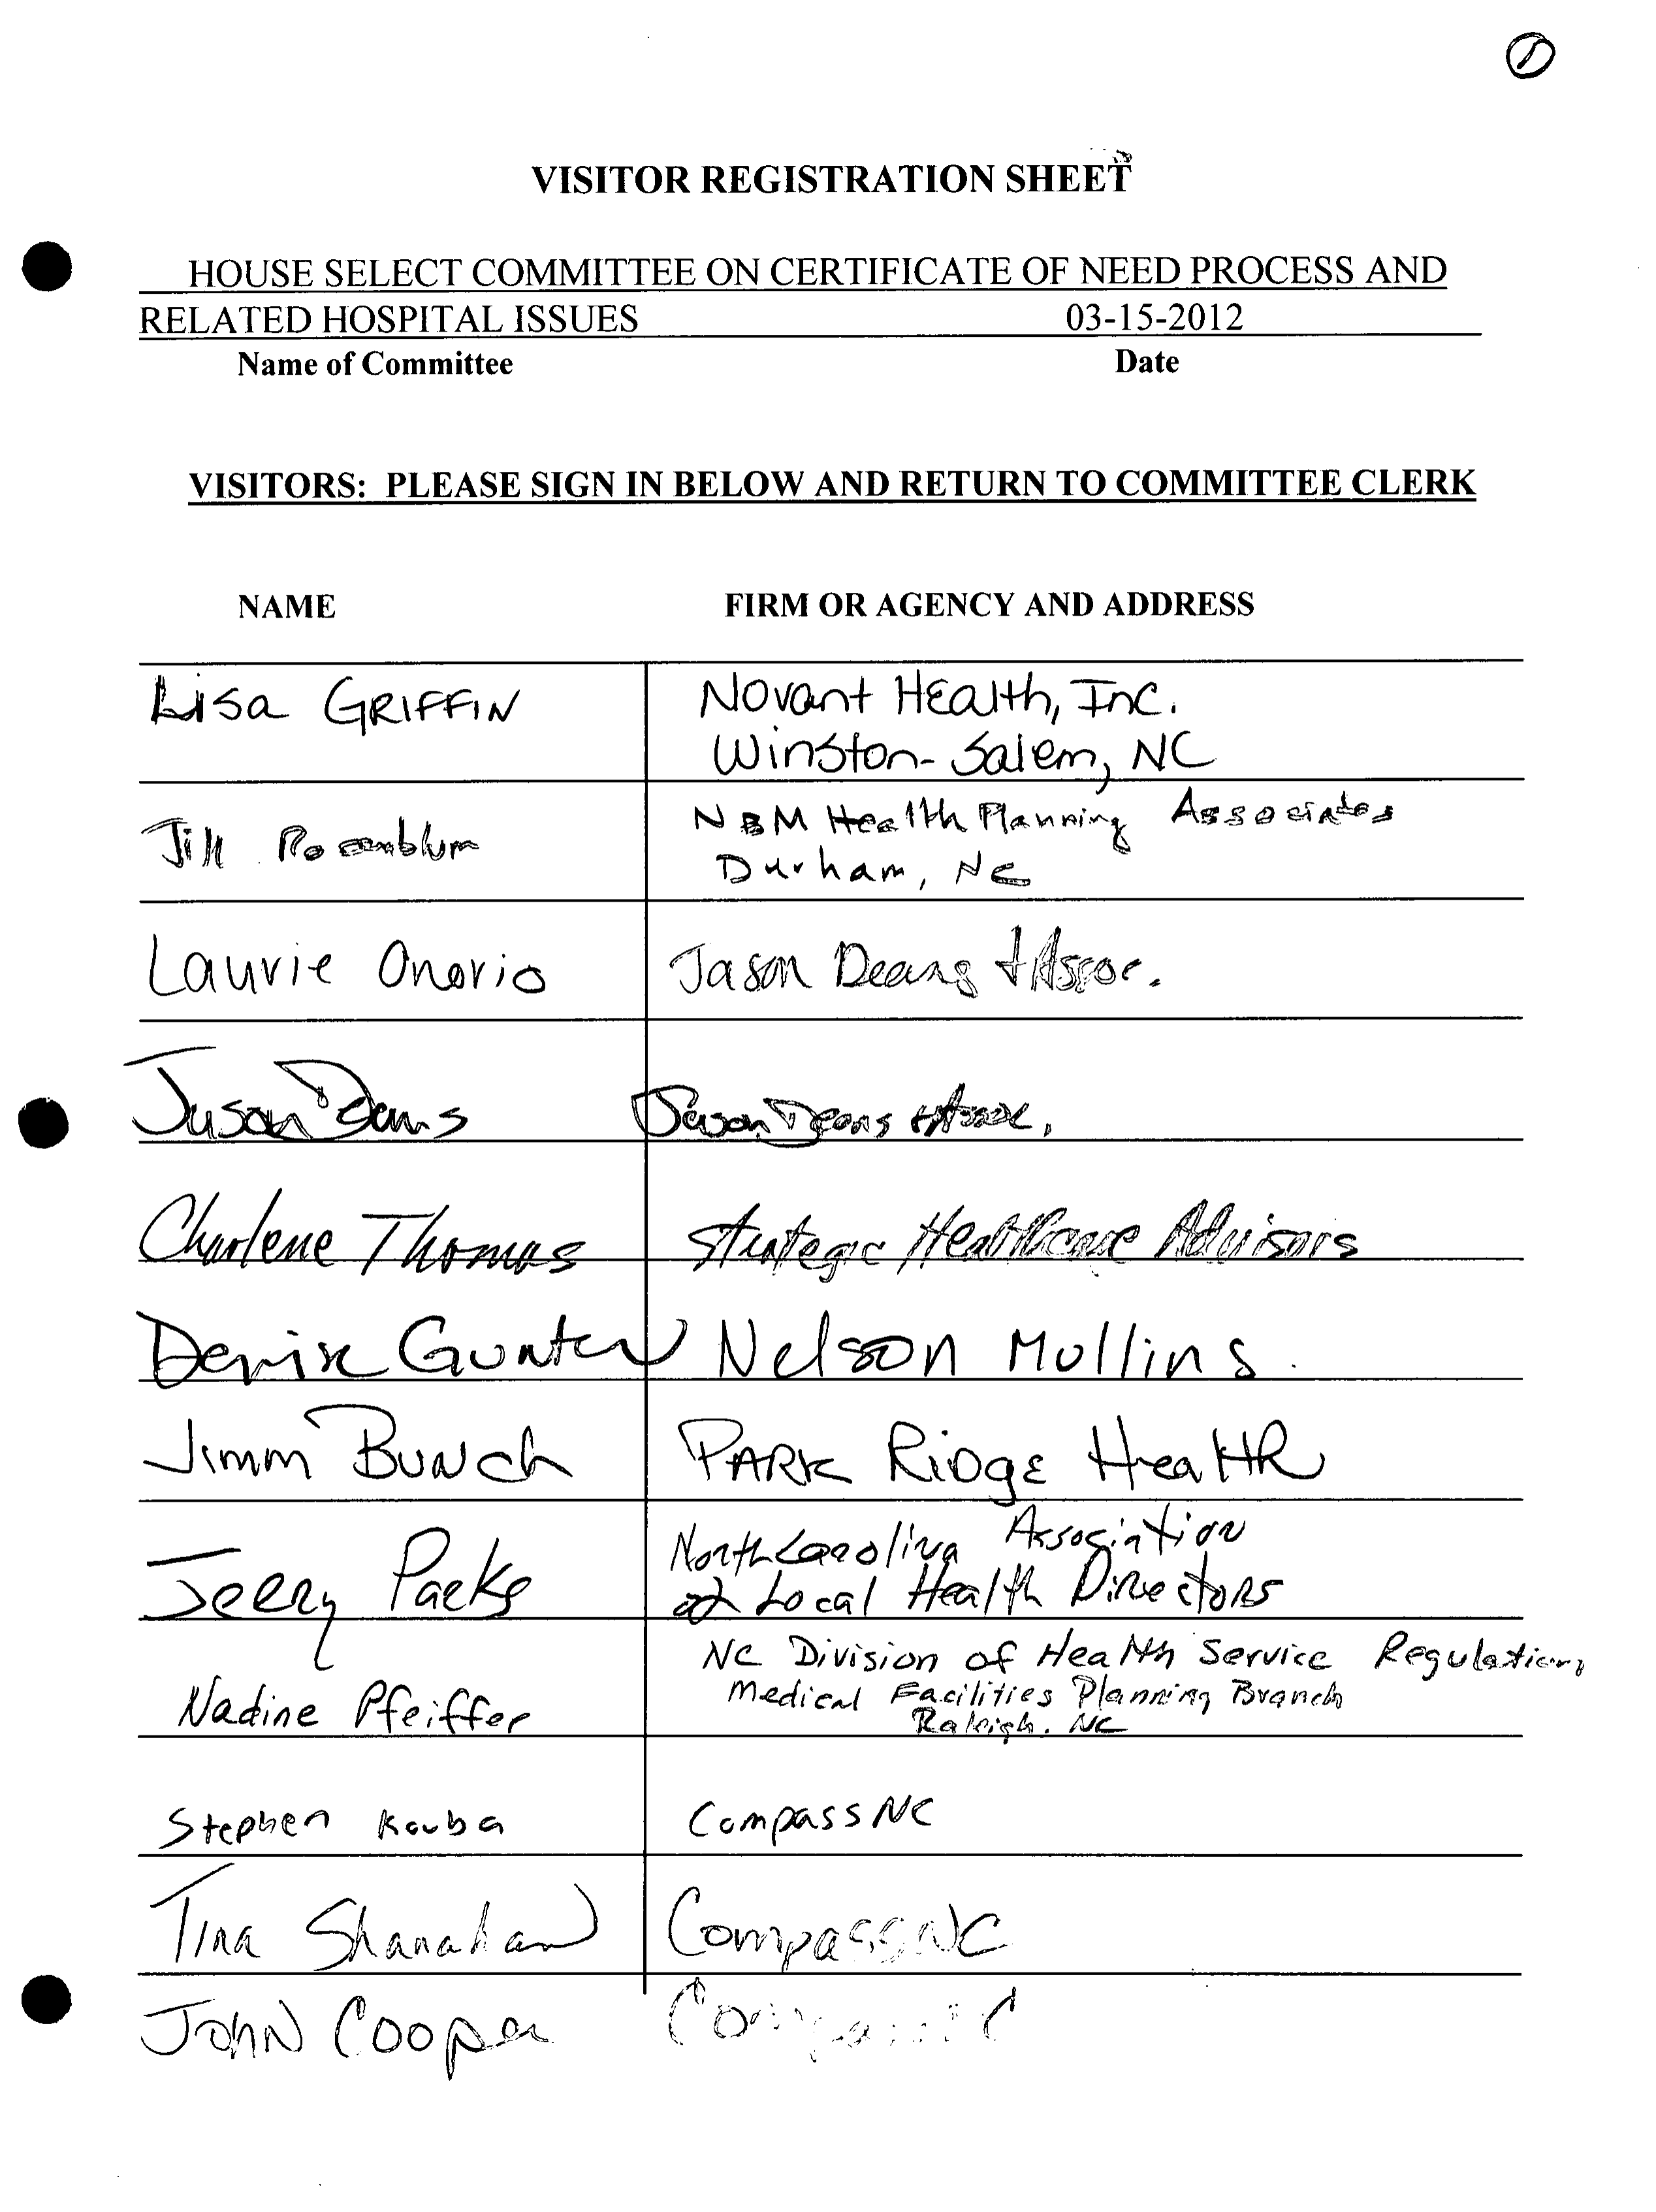 1
VISITOR REGISTRATION SHEET
HOUSE SELECT COMMITTEE ON CERTIFICATE OF NEED PROCESS AND
RELATED HOSPITAL ISSUES 03-15-2012
Name of Committee Date
VISITORS: PLEASE SIGN IN BELOW AND RETURN TO COMMITTEE CLERK
NAME FIRM OR AGENCY AND ADDRESS
Lisa GRIFFIN Novant Health, Inc.
Winston-Salem, NC
Jill Rosenblum NBM Health Planning Associates
Durham, NC
Laurie Onorio Jason Deans + Assoc.
Jason Deans Jason Deans + Assoc.
Charlene Thomas Strategic Healthcare Advisors
Denise Gunter Nelson Mullins
Jimm Bunch PARK RIDGE Health
Jerry Parks North Carolina Association
of Local Health Directors
Nadine Pfeiffer NC Division of Health Service Regulation,
Medical Facilities Planning Branch
Raleigh, NC
Stephen Kouba CompassNC
Tina Shanahan CompassNC
John Cooper